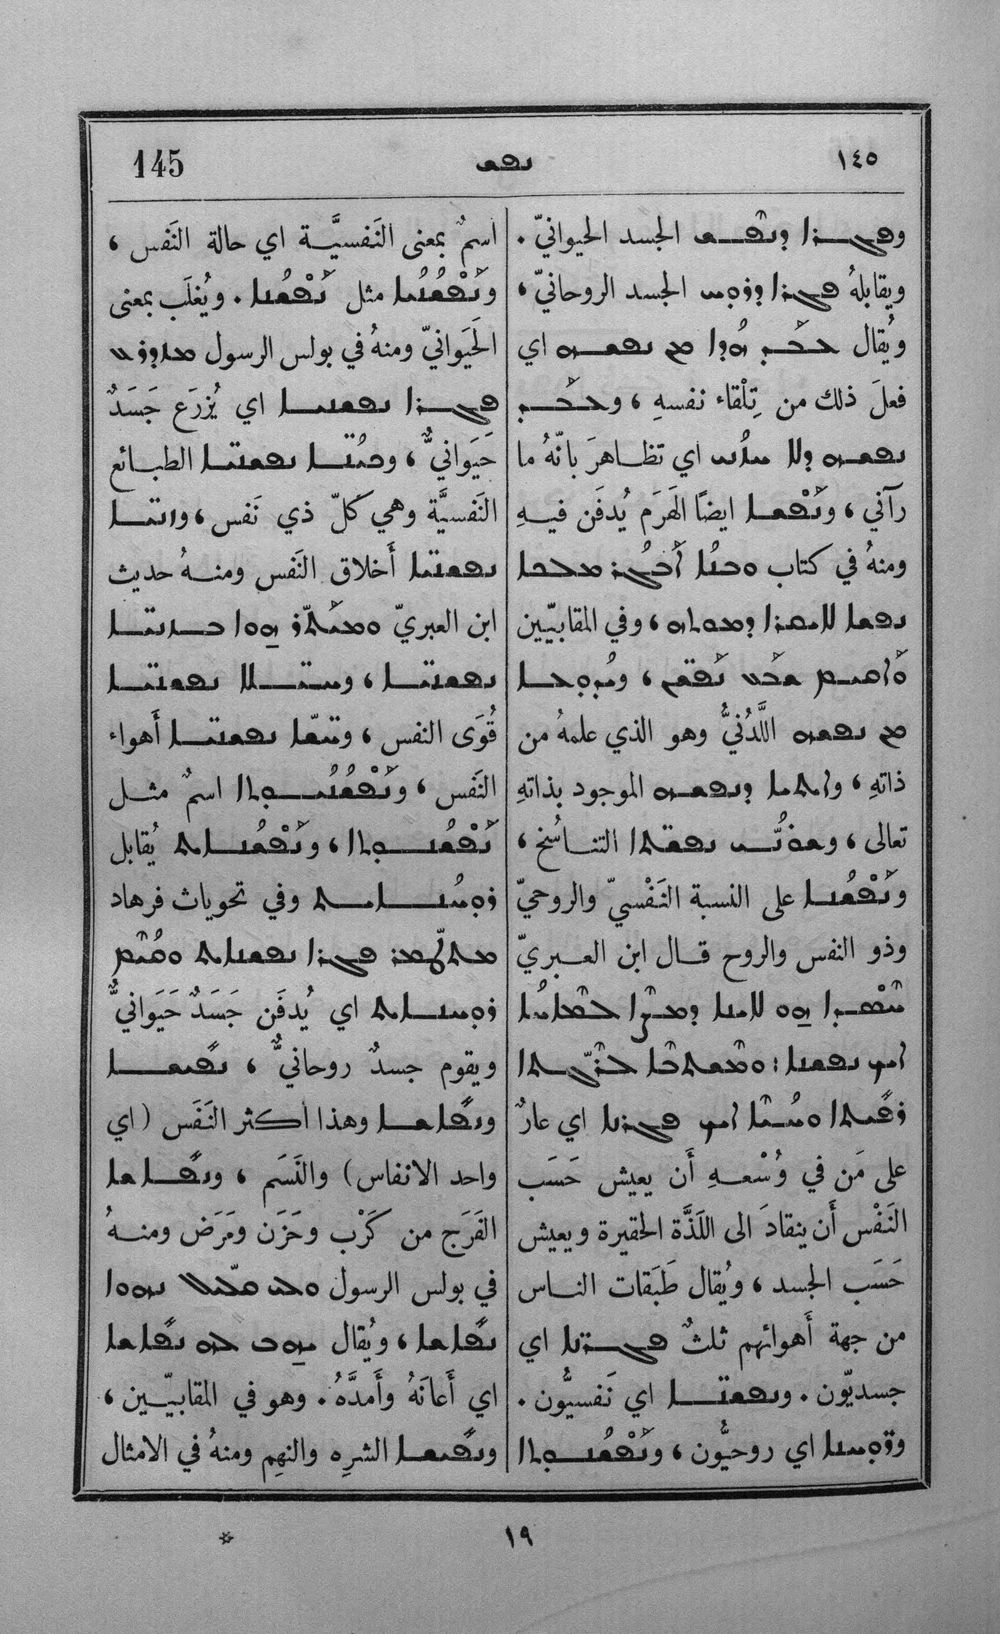 ١٤٥
ܢܦܫ
145
وܦܓܪܐ ܕܢܦܫ الجسد الحيوانيّ .
ويقابلهُ ܦܓܪܐ ܕܪܘܚ الجسد الروحانيّ ،
ويُقال ܥܒܕ ܗܕܐ ܡܢ ܢܦܫܗ اي
فعلَ ذلك من تِلْقاء نفسهِ ، وܥܒܕ
ܢܦܫܗ ܕܠܐ ܚܙܢܝ اي تظاهرَ بانّهُ ما
رآني ، وܢܦܫܐ ايضًا الهَرَم يُدفَن فيهِ
ومنهُ في كتاب
ܢܦܫܐ ، وفي المقابيّين
ܘܐܩܝܡ ܫܒܥ ܢܦܫܢ ،
ܡܢ ܢܦܫܗ اللَّدُنيُّ وهو الذي علمهُ من
ذاتهِ ، وܐܝܬܝܐ ܕܢܦܫܗ الموجود بذاتهِ
تعالى ، وܡܫܢܝ ܢܦܫܬܐ التناسُخ ،
وܢܦܫܢܐ على النسبة النَفْسيّ والروحيّ
وذو النفس والروح قال ابن العبريّ
ܐܝܟ ܢܦܫܢܐ :
ܐܝܟ ܦܓܪܢܐ اي عارٌ
على مَن في وُسْعهِ أَن يعيش حَسَب
النَفْس أَن ينقادَ الى اللَذَّة الحقيرة ويعيش
حَسَب الجسد ، ويُقال طَبَقات الناس
من جهة أَهوائهم ثلثٌ ܦܓܪܢܐ اي
جسديّون . وܢܦܫܢܐ اي نَفسيُّون .
وܪܘܚܢܐ اي روحيُّون ، وܢܦܫܢܘܬܐ
اسمٌ بمعنى النَفسيَّة اي حالة النَفس ،
وܢܦܫܢܝܐ مثل ܢܦܫܢܐ . ويُغلَب بمعنى
الحَيَوانيّ ومنهُ في بولس الرسول ܡܙܕܪܥ
ܦܓܪܐ ܢܦܫܢܝܐ اي يُزرَع جَسَدٌ
حَيَوانيٌّ ، وܟܝܢܐ ܢܦܫܢܝܐ الطبائع
النَفسيَّة وهي كلّ ذي نَفس ، وܙܢܝܐ
ܢܦܫܢܝܐ أَخلاق النَفس ومنهُ حديث
ابن العبريّ ܗܘܐ ܒܙܢܝܐ
ܢܦܫܢܝܐ ، وܚܝܠܐ ܢܦܫܢܝܐ
قُوَى النفس ، وܚܫܐ ܢܦܫܢܝܐ أَهواء
النَفس ، وܢܦܫܢܝܘܬܐ اسمٌ مثل
ܢܦܫܢܘܬܐ ، وܢܦܫܢܐܝܬ يُقابل
ܪܘܚܢܐܝܬ وفي تحويات فرهاد
ܡܬܛܡܪ ܦܓܪܐ ܢܦܫܢܐܝܬ ܘܩܐܡ
ܪܘܚܢܐܝܬ اي يُدفَن جَسَدٌ حَيَوانيٌّ
ويقوم جسدٌ روحانيٌّ ، ܢܦܝܫܐ
وܢܦܐܫܐ وهذا أكثر النَفَس (اي
واحد الانفاس) والنَسَم ، وܢܦܐܫܐ
الفَرَج من كَرْب وحَزَن ومَرَض ومنهُ
في بولس الرسول ܘܒܝ ܩܠܝܠ ܢܗܘܐ
ܢܦܐܫܐ ، ويُقال ܝܗܒ ܠܗ ܢܦܐܫܐ
اي أَعانَهُ وأَمدَّهُ . وهو في المقابيّين ،
وܢܦܝܫܐ الشرِه والنهِم ومنهُ في الامثال
١٩
*